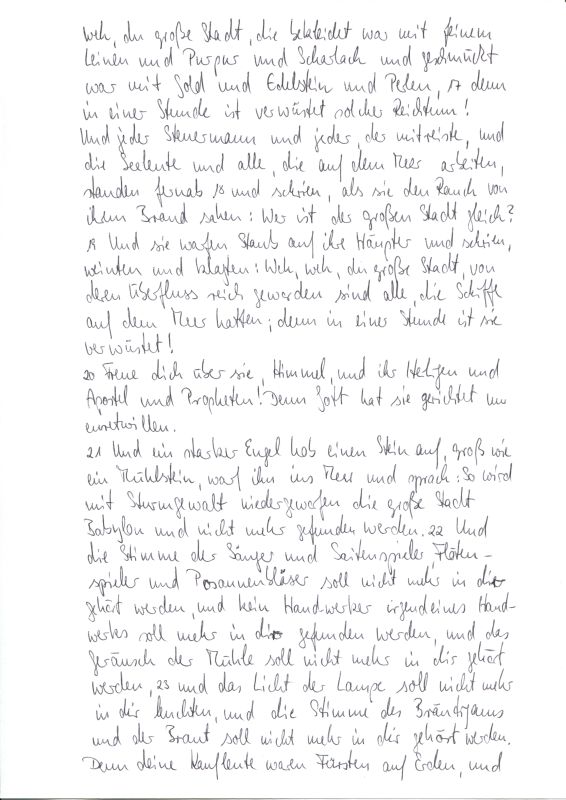 Weh, du große Stadt, die bekleidet war mit feinem
Leinen und Purpur und Scharlach und geschmückt
war mit Gold und Edelstein und Perlen, 17 denn
in einer Stunde ist verwüstet solcher Reichtum!
Und jeder Steuermann und jeder, der mitreiste, und
die Seeleute und alle, die auf dem Meer arbeiten,
standen fernab 18 und schrien, als sie den Rauch von
ihrem Brand sahen: Wer ist der großen Stadt gleich?
19 Und sie warfen Staub auf ihre Häupter und schrien,
weinten und klagten: Weh, weh, du große Stadt, von
deren Überfluss reich geworden sind alle, die Schiffe
auf dem Meer hatten; denn in einer Stunde ist sie
verwüstet!
20 Freue dich über sie, Himmel, und ihr Heiligen und
Apostel und Propheten! Denn Gott hat sie gerichtet um
euretwillen.
21 Und ein starker Engel hob einen Stein auf, groß wie
ein Mühlstein, warf ihn ins Meer und sprach: So wird
mit Sturmgewalt niedergeworfen die große Stadt
Babylon und nicht mehr gefunden werden. 22 Und
die Stimme der Sänger und Saitenspieler, Flöten-
spieler und Posaunenbläser soll nicht mehr in dir
gehört werden, und kein Handwerker irgendeines Hand-
werkes soll mehr in dir gefunden werden, und das
Geräusch der Mühle soll nicht mehr in dir gehört
werden, 23 und das Licht der Lampe soll nicht mehr
in dir leuchten, und die Stimme des Bräutigams
und der Braut soll nicht mehr in dir gehört werden.
Denn deine Kaufleute waren Fürsten auf Erden, und